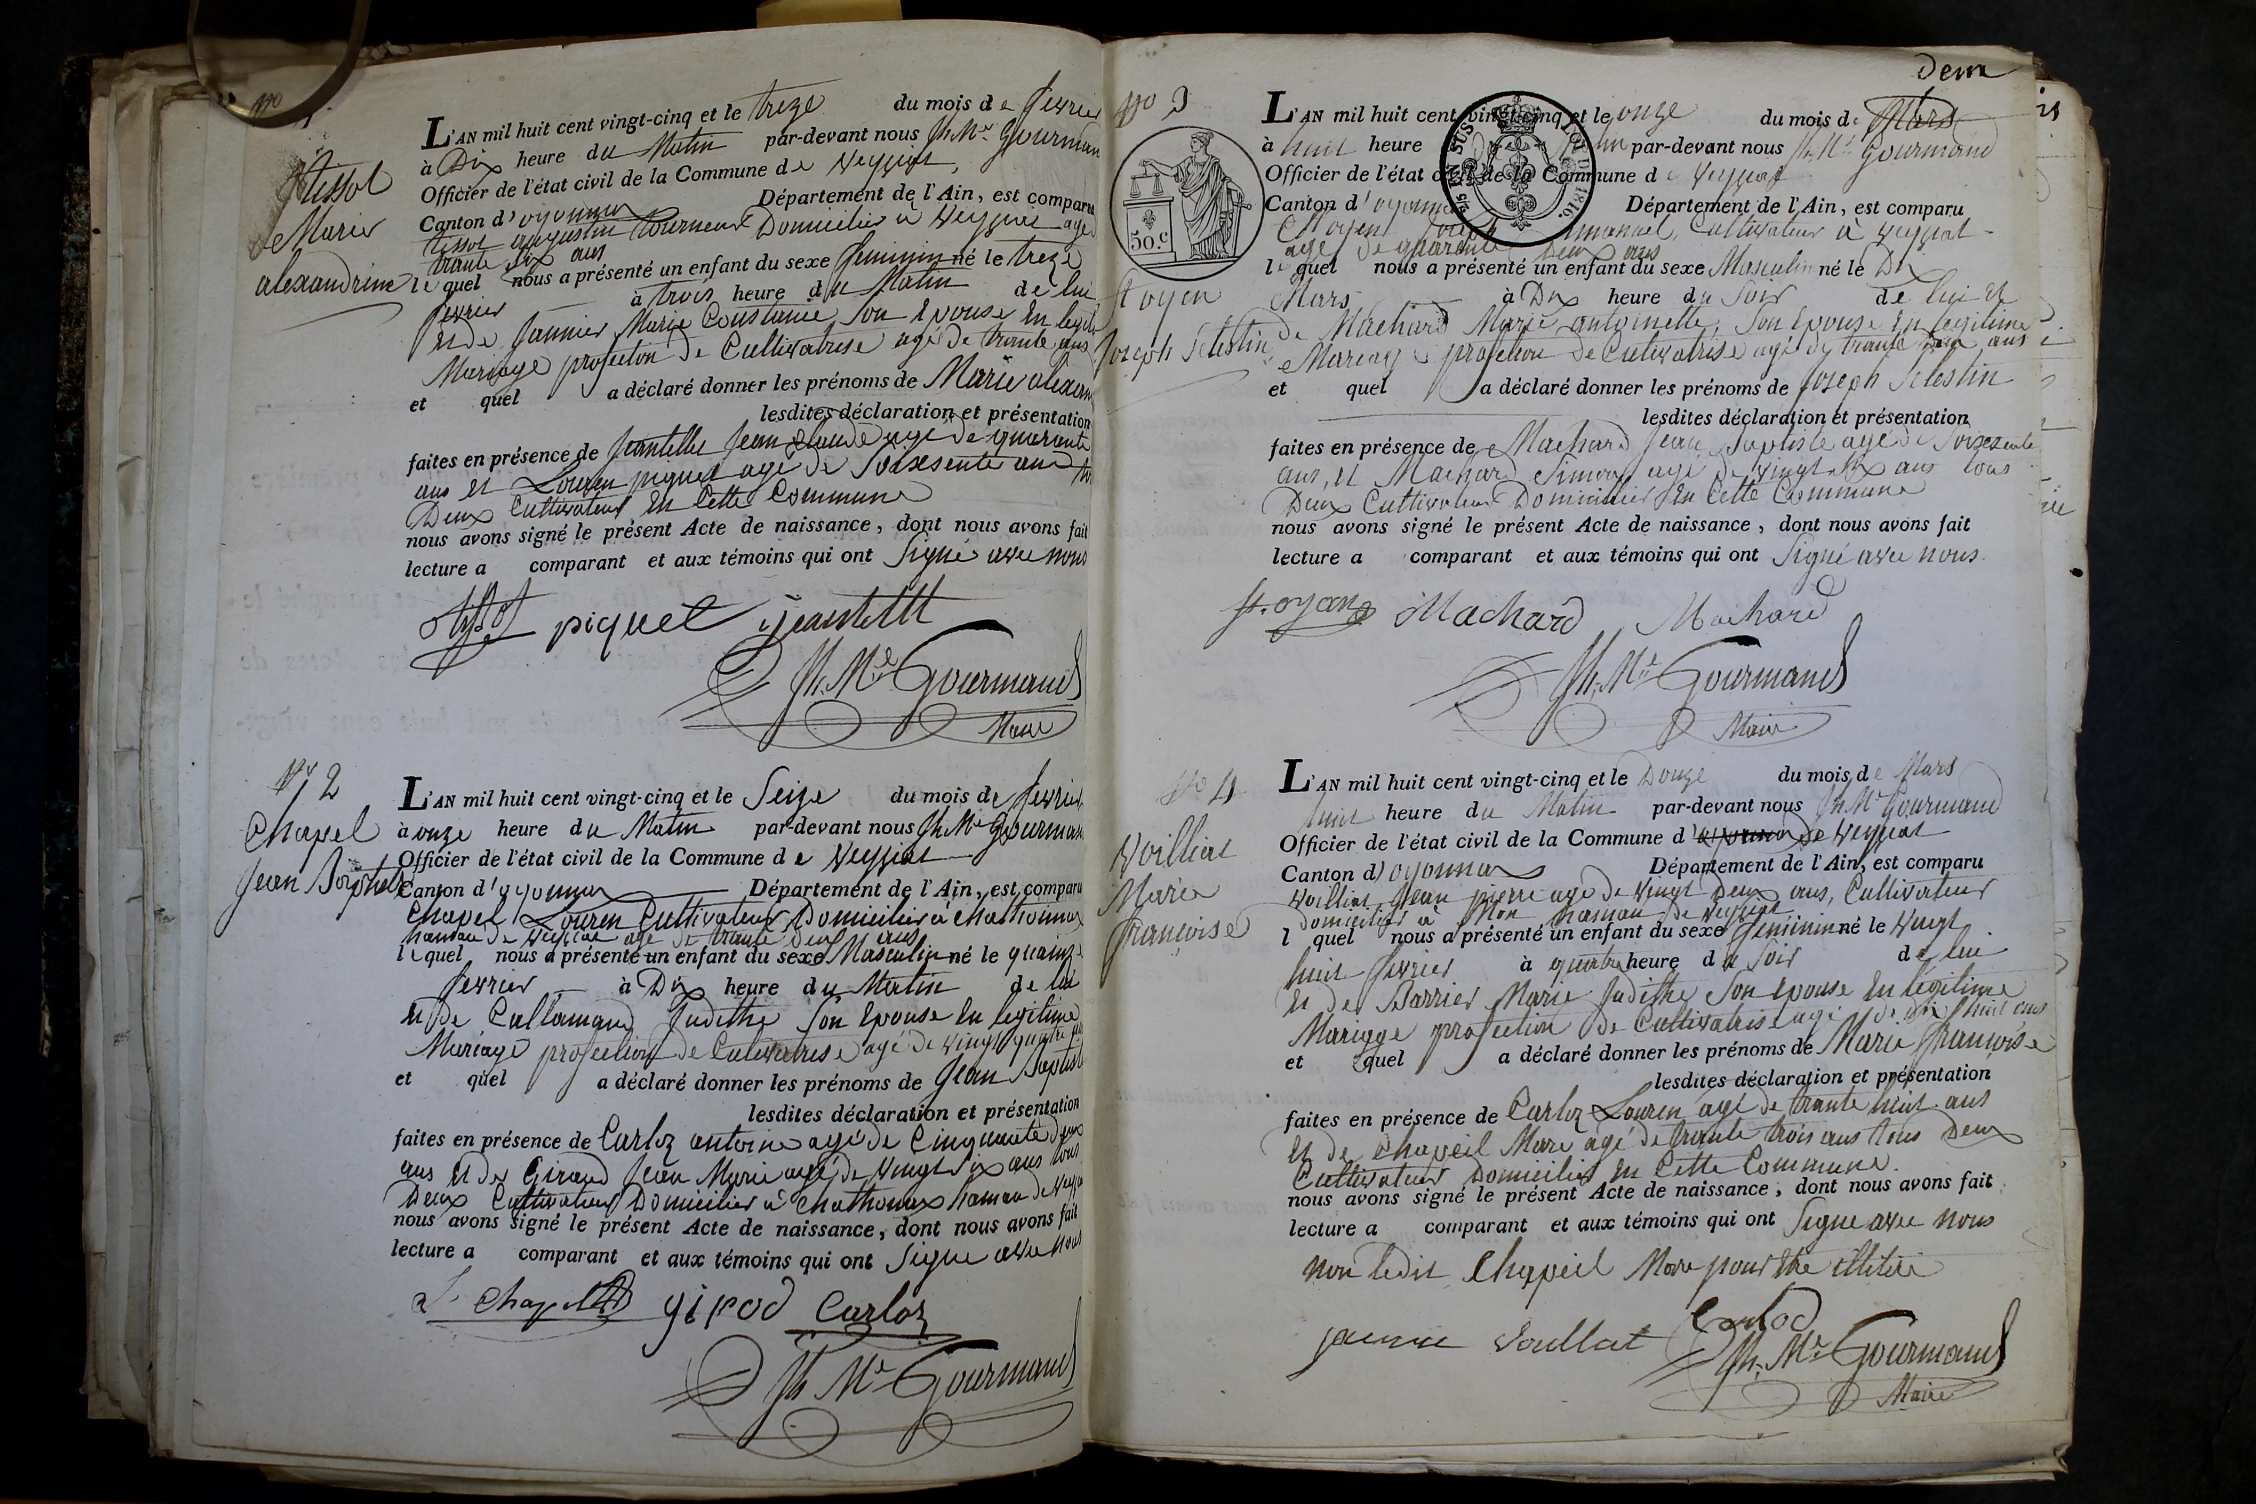 No
Tissot
Marie
alexandrine
L'AN mil huit cent vingt-cinq et le treze du mois de fevrier
à Dix heure du Matin par-devant nous Jh. Mie Gourmand
Officier de l'état civil de la Commune de Veyziat,
Canton d'oyonnax Département de l'Ain, est comparu
tissot augustin tourneur Domicilié à Veyziat agé
trante six ans
le quel nous a présenté un enfant du sexe feminin né le treze
fevrier à trois heure du Matin de lui
et de Jannier Marie Constance son epouse en legitime
Mariage profection de Cultivatrise agé de trante ans
et quel a déclaré donner les prénoms de Marie alexan
lesdites déclaration et présentation
faites en présence de Jeantelle Jean Claude agé de quarante
ans et Louren piquet agé de soixsente ans
Deux Cultivateurs en Cette Commune
nous avons signé le présent Acte de naissance, dont nous avons fait
lecture a comparant et aux témoins qui ont signé avec nous
tissot piquet jeantelle
Jh. Mie Gourmand
Maire
No 2
Chapel
Jean Baptiste
L'AN mil huit cent vingt-cinq et le Seize du mois de fevrier
à onze heure du Matin par-devant nous Jh. Mie Gourmand
Officier de l'état civil de la Commune de Veyziat
Canton d'oyonnax Département de l'Ain, est comparu
Chapel Louren Cultivateur Domicilier à Chathonnax
hamau de Veyziat agé de trante deux ans
le quel nous a présenté un enfant du sexe Masculin né le quainze
fevrier à Dix heure du Matin de lui
et de Callamand Judithe son epouse en legitime
Mariage profection de Cultivatrise agé de vingt quatre
et quel a déclaré donner les prénoms de Jean Baptiste
lesdites déclaration et présentation
faites en présence de Carloz antoine agé de Cinquante deux
ans et de Girod Jean Marie agé de vingt six ans tous
Deux Cultivateurs Domicilier à Chathonax hamau de Veyzia
nous avons signé le présent Acte de naissance, dont nous avons fait
lecture a comparant et aux témoins qui ont signe avec nous
L. Chapel girod Carloz
Jh. Mie Gourmand
deux
No 3
50 c
EN SUS LOI DE 1816.
St oyen
Joseph Selestin
L'AN mil huit cent vingt-cinq et le onze du mois de Mars
à huit heure par-devant nous Jh. Mie Gourmand
Officier de l'état civil de la Commune de Veyziat
Canton d'oyonnax Département de l'Ain, est comparu
St oyen Joseph Emanuel, Cultivateur à Veyziat
agé de quarante Deux ans
le quel nous a présenté un enfant du sexe Masculin né le Dix
Mars à Dix heure du Soir de lui et
de Machard Marie antoinette, son epouse en legitime
Mariage profection de Cultivatrise agé de trante deux ans
et quel a déclaré donner les prénoms de Joseph Selestin
lesdites déclaration et présentation
faites en présence de Machard Jean Baptiste agé de soixsente
ans, et Machard Simon agé de vingt six ans tous
Deux Cultivateur Domicilier en Cette Commune
nous avons signé le présent Acte de naissance, dont nous avons fait
lecture a comparant et aux témoins qui ont Signé avec nous.
St. oyen Machard Machard
Jh. Mie Gourmand
Maire
No 4
Voilliat
Marie
françoise
L'AN mil huit cent vingt-cinq et le Douze du mois de Mars
huit heure du Matin par-devant nous Jh. Mie Gourmand
Officier de l'état civil de la Commune d de Veyziat
Canton d'oyonnax Département de l'Ain, est comparu
Voilliat Jean pierre agé de vingt Deux ans, Cultivateur
domicilier à Mon hamau de Veyziat
l quel nous a présenté un enfant du sexe feminin né le vingt
huit fevrier à quatre heure du Soir de lui
et de Barrier Marie Judithe son epouse en légitime
Mariage profection de Cultivatrise agé de dix huit ans
et quel a déclaré donner les prénoms de Marie françoise
lesdites déclaration et présentation
faites en présence de Carloz Louren agé de trante huit ans
et de Chapeil Marc agé de trante trois ans tous Deux
Cultivateur Domicilier en Cette Commune.
nous avons signé le présent Acte de naissance, dont nous avons fait
lecture a comparant et aux témoins qui ont Signe avec nous
non ledit Chapeil Marc pour être illitéré
Carloz
Jh. Mie Gourmand
Maire